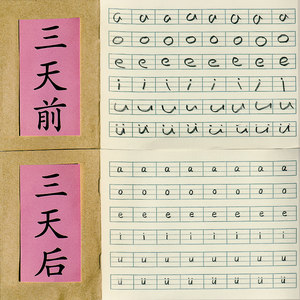 三天前
a a a a a a a
o o o o o o o o
e e e e e e e e
i i i i i i i
u u u u u u u
ü ü ü ü ü ü ü ü
三天后
a a a a a a a
o o o o o o o
e e e e e e e
i i i i i i i i
u u u u u u u
ü ü ü ü ü ü ü